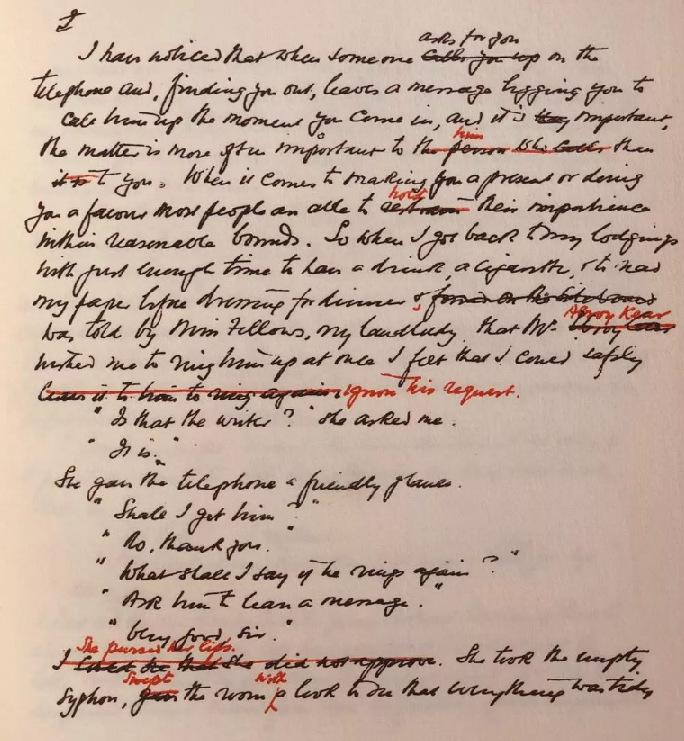 I
asks for you
I have noticed that when someone calls you up on the
telephone and, finding you out, leaves a message begging you to
call him up the moment you come in, and it is important,
the matter is more often important to the person who calls than
him
it is to you. When it comes to making you a present or doing
hold
you a favour most people are able to restrain their impatience
within reasonable bounds. So when I got back to my lodgings
with just enough time to have a drink, a cigarette, & to read
my paper before dressing for dinner & found on the sideboard
Alroy Kear
was told by Miss Fellows, my landlady, that Mr.
wished me to ring him up at once I felt that I could safely
leave it to him to ring again ignore his request.
" Is that the writer ? " she asked me.
" It is. "
She gave the telephone a friendly glance.
" Shall I get him ? "
" No, thank you.
" What shall I say if he rings again ? "
" Ask him to leave a message. "
" Very good, sir. "
She pursed her lips.
I that she did not approve. She took the empty
swept with
syphon, gave the room a look to see that everything was tidy